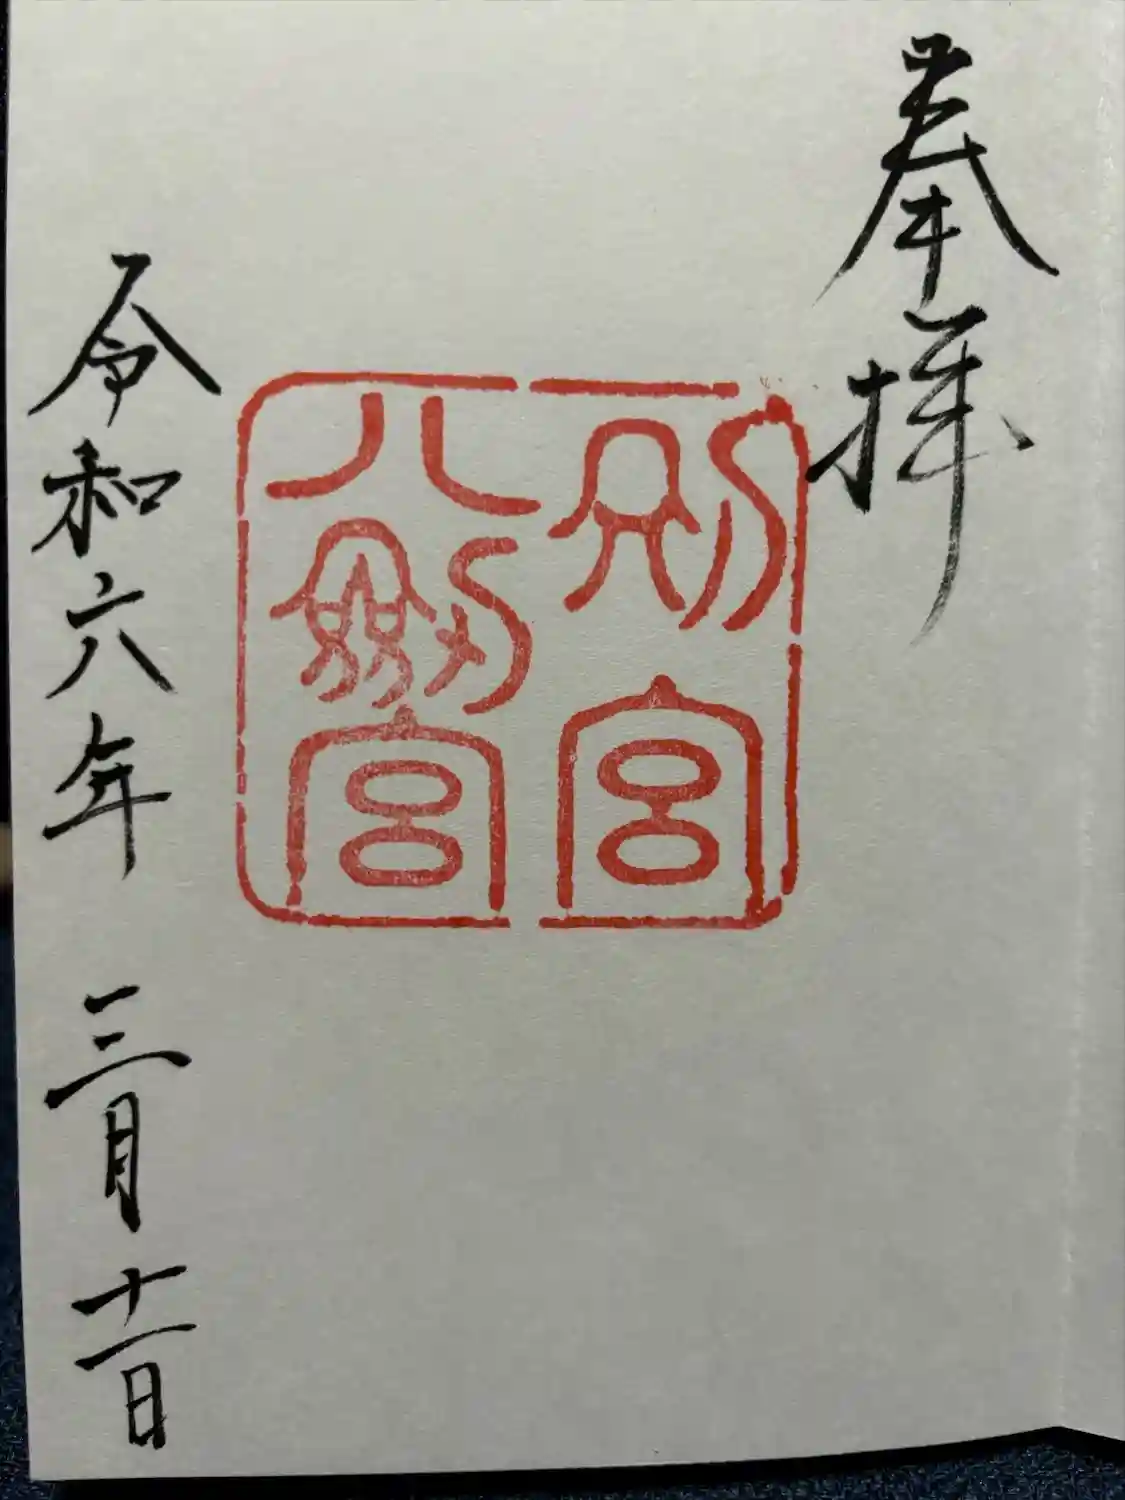 奉拝
別宮
八劔宮
令和六年 三月十一日